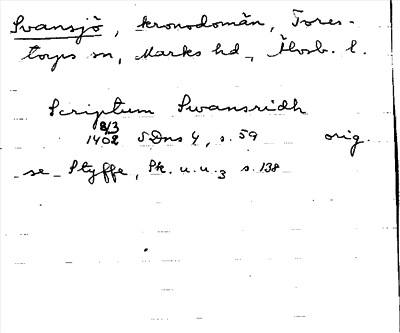 Svansjö, kronodomän, Tores-
torps sn, Marks hd, Älvsb. l.
Scriptum Swansridh
8/3
1402 SDns 4, s. 59 orig.
se Styffe, Sk. u. u. 3 s. 138